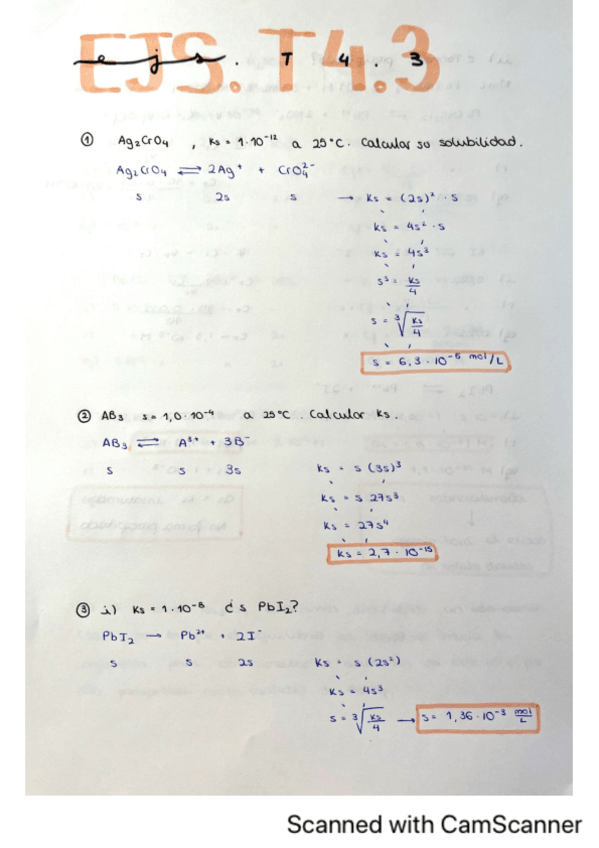 EJS. T4.3
e j s . T 4 . 3
① Ag₂CrO₄ , Ks = 1·10⁻¹² a 25°C. Calcular su solubilidad.
Ag₂CrO₄ ⇌ 2Ag⁺ + CrO₄²⁻
s 2s s → Ks = (2s)² · s
Ks = 4s² · s
Ks = 4s³
s³ = Ks/4
s = ³√(Ks/4)
s = 6,3 · 10⁻⁵ mol/L
② AB₃ s = 1,0·10⁻⁴ a 25°C. Calcular Ks.
AB₃ ⇌ A³⁺ + 3B⁻
s s 3s Ks = s (3s)³
Ks = s 27s³
Ks = 27s⁴
Ks = 2,7 · 10⁻¹⁵
③ i) Ks = 1·10⁻⁸ ¿s PbI₂?
PbI₂ → Pb²⁺ + 2I⁻
s s 2s Ks = s (2s²)
Ks = 4s³
s = ³√(Ks/4) → s = 1,36·10⁻³ mol/L
Scanned with CamScanner